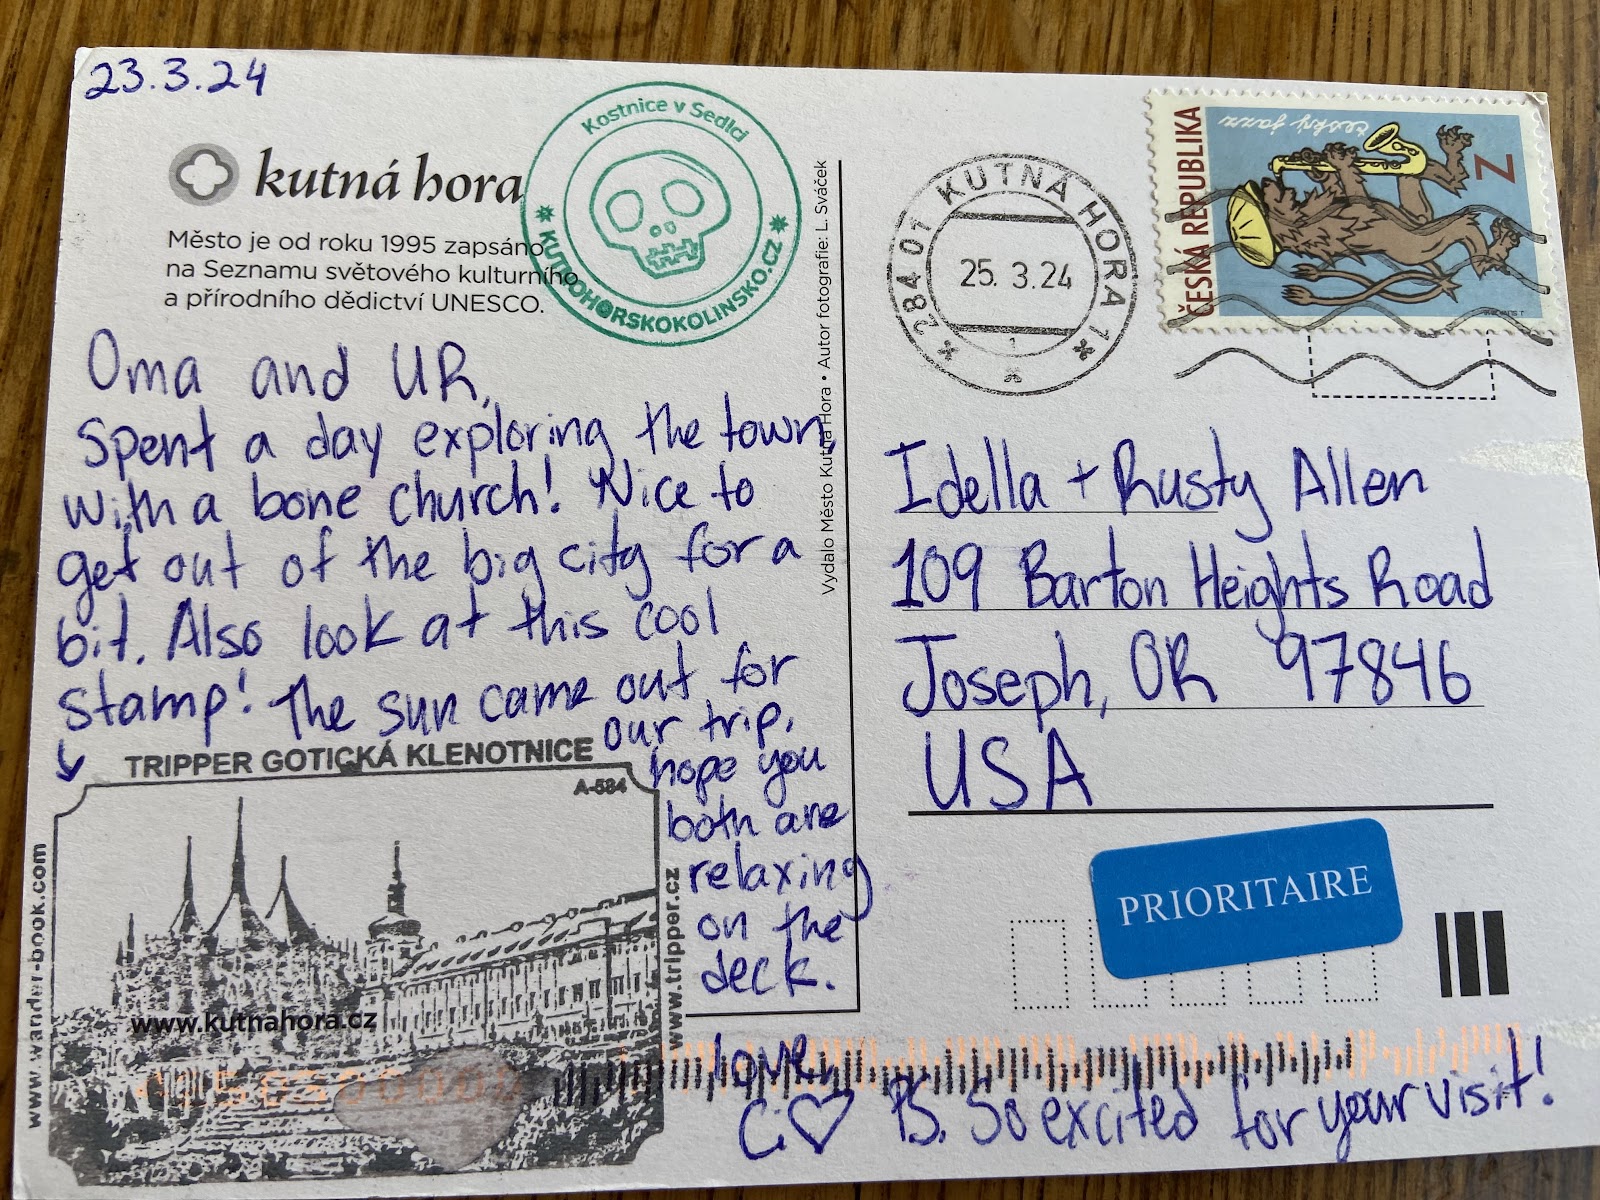 23.3.24
kutná hora
Město je od roku 1995 zapsáno
na Seznamu světového kulturního
a přírodního dědictví UNESCO.
Kostnice v Sedlci
KUTNOHORSKOKOLINSKO.CZ
Oma and UR,
Spent a day exploring the town
with a bone church! Nice to
get out of the big city for a
bit. Also look at this cool
stamp! The sun came out for
our trip,
hope you
both are
relaxing
on the
deck.
love,
C. ♡
PS. So excited for your visit!
TRIPPER GOTICKÁ KLENOTNICE
A-584
www.wander-book.com
www.tripper.cz
www.kutnahora.cz
Vydalo Město Kutná Hora • Autor fotografie: L. Sváček
284 01 KUTNÁ HORA 1
25. 3.24
1
ČESKÁ REPUBLIKA
český jazz
Z
Idella + Rusty Allen
109 Barton Heights Road
Joseph, OR 97846
USA
PRIORITAIRE